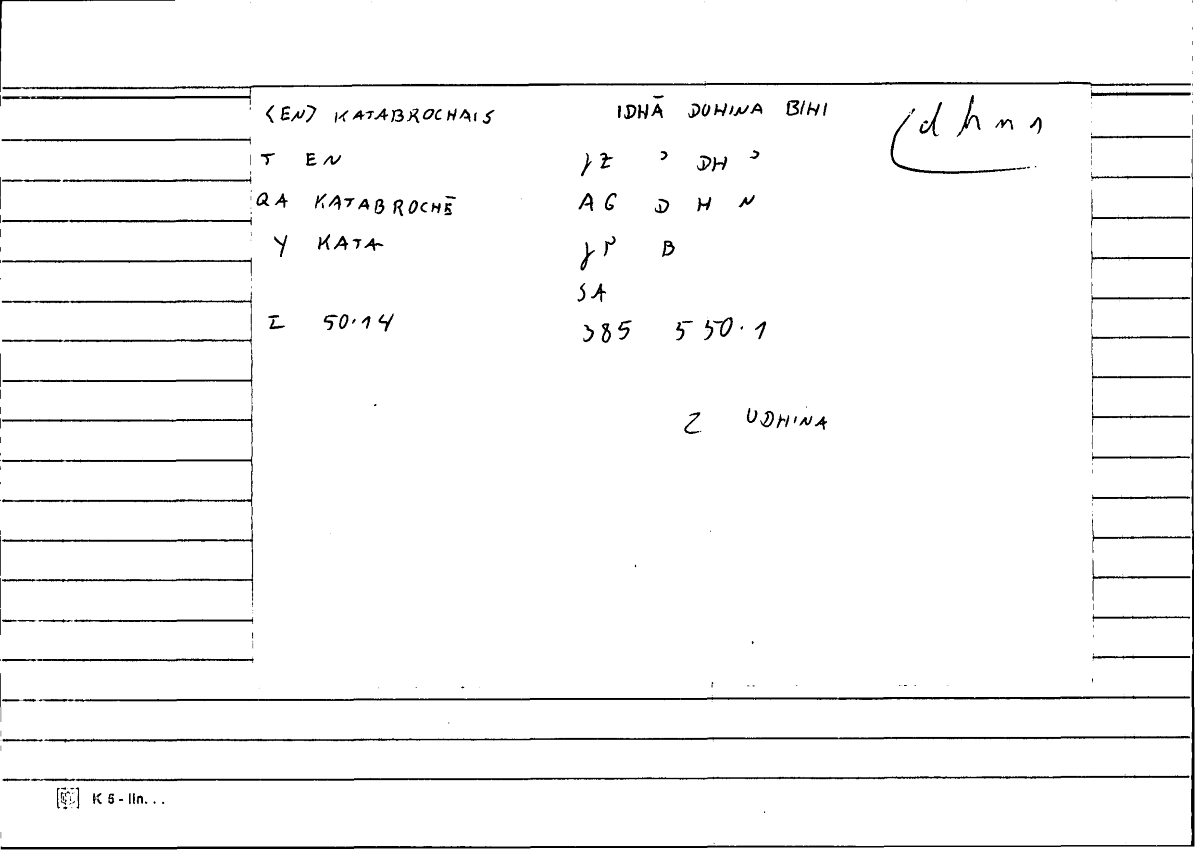 ⟨EN⟩ KATABROCHAIS IDHĀ DUHINA BIHI dhn1
T EN ʒZ ʾ DH ʾ
QA KATABROCHĒ AG D H N
Y KATA ʒP B
SA
I 50.14 385 5 50.1
Z UDHINA
K 5 - lin...